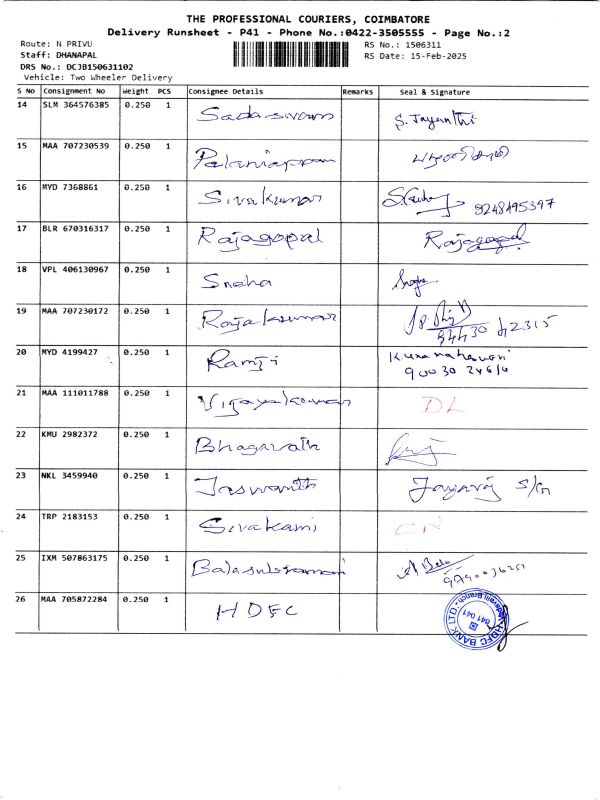 THE PROFESSIONAL COURIERS, COIMBATORE
Delivery Runsheet - P41 - Phone No.:0422-3505555 - Page No.:2
Route: N PRIVU
RS No.: 1506311
Staff: DHANAPAL
RS Date: 15-Feb-2025
DRS No.: DCJB150631102
Vehicle: Two Wheeler Delivery
S No Consignment No Weight PCS Consignee Details Remarks Seal & Signature
14 SLM 364576385 0.250 1 Sadasivam S. Jayanthi
15 MAA 707230539 0.250 1 Palaniappan
16 MYD 7368861 0.250 1 Sivakumar 9248195397
17 BLR 670316317 0.250 1 Rajagopal Rajagopal
18 VPL 406130967 0.250 1 Sneha Sneha
19 MAA 707230172 0.250 1 Rajakumar
94430 42315
20 MYD 4199427 0.250 1 Ramji
90030 24610
21 MAA 111011788 0.250 1 Vijayakumar DL
22 KMU 2982372 0.250 1 Bhagavath
23 NKL 3459940 0.250 1 Jaswanth Jayaraj S/o
24 TRP 2183153 0.250 1 Sivakami CN
25 IXM 507863175 0.250 1 Balasubramani
26 MAA 705872284 0.250 1 HDFC
HDFC BANK LTD.
641 041